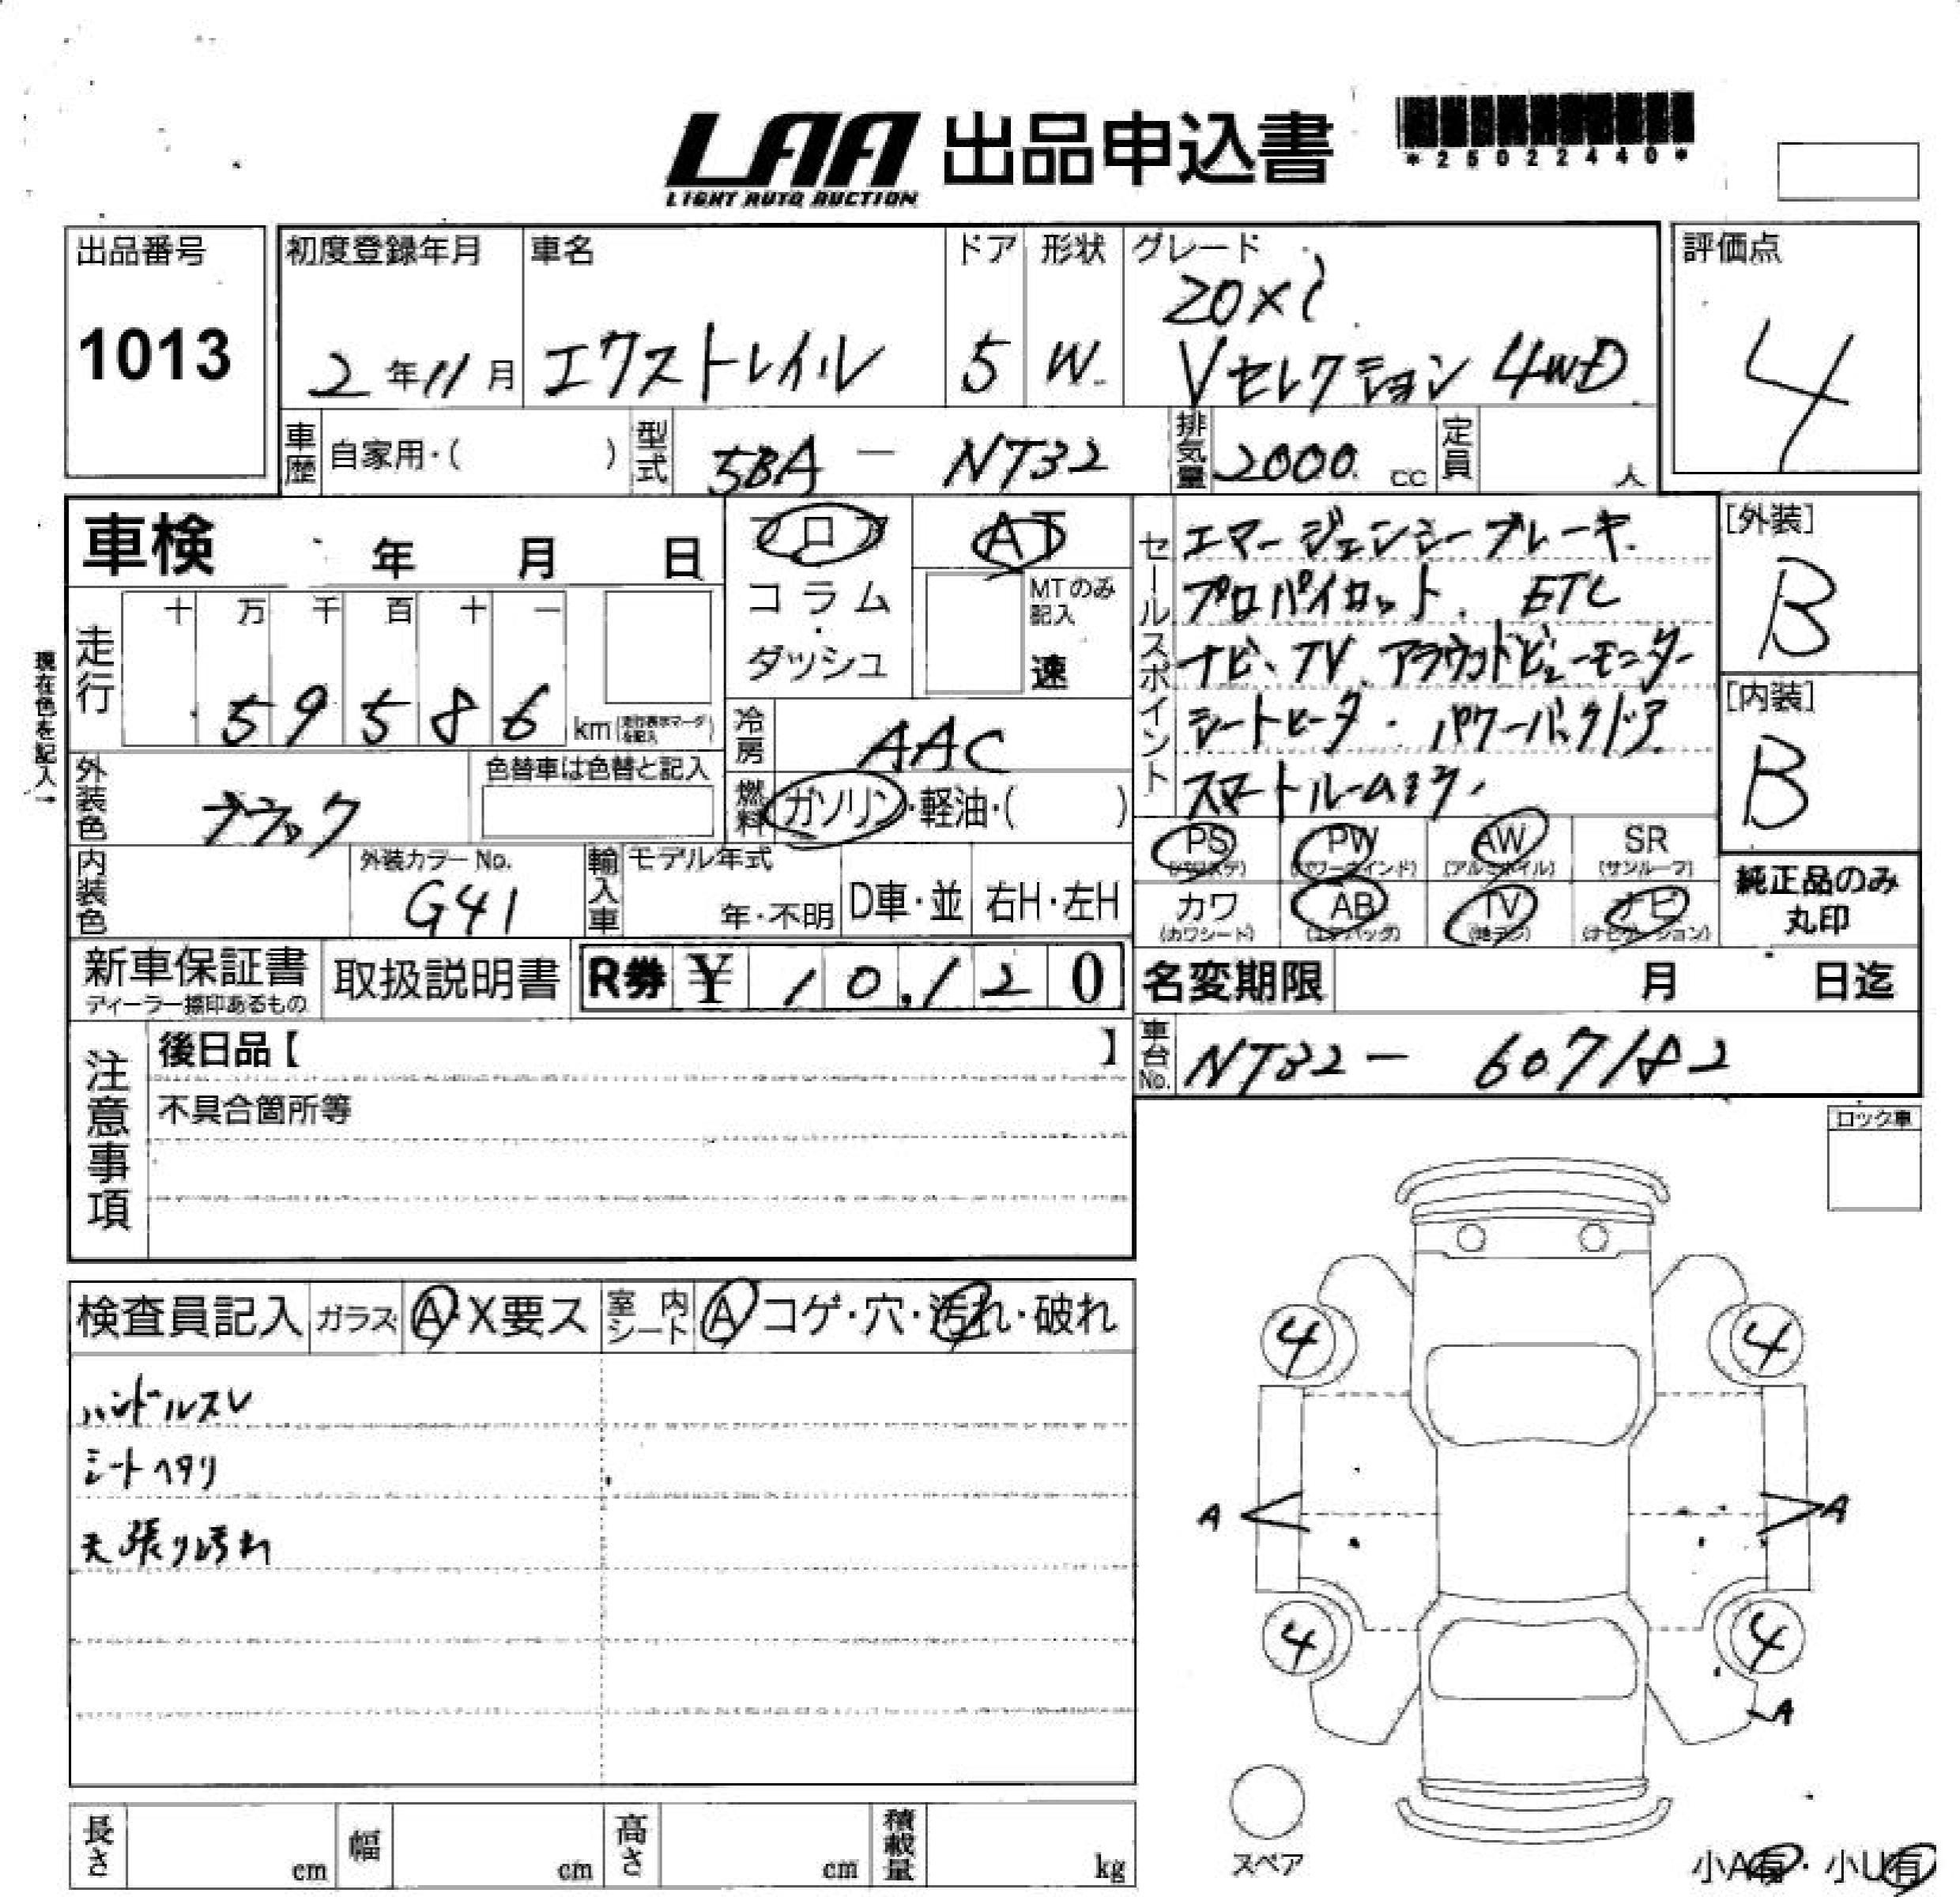 LAA 出品申込書
LIGHT AUTO AUCTION
*25022440*
出品番号
1013
初度登録年月
2年11月
車名
エクストレイル
ドア
5
形状
W
グレード
20xi
Vセレクション 4WD
評価点
4
車歴 自家用・( )
型式 5BA - NT32
排気量 2000 cc
定員 人
車検 年 月 日
フロア
コラム・ダッシュ
AT
MTのみ記入
速
セールスポイント
エマージェンシーブレーキ
プロパイロット. ETC
ナビ、TV アラウンドビューモニター
シートヒータ・パワーバックドア
スマートルームミラー
[外装]
B
[内装]
B
現在色を記入→
走行 十 万 千 百 十 一
59586 km
冷房 AAC
燃料 ガソリン・軽油・( )
外装色 ブラック
色替車は色替と記入
内装色
外装カラーNo.
G41
輸入車 モデル年式
年・不明 D車・並 右H・左H
PS PW AW SR
(パワステ) (パワーウインド) (アルミホイル) (サンルーフ)
カワ AB TV ナビ
(カワシート) (エアバッグ) (地デジ) (ナビゲーション)
純正品のみ
丸印
新車保証書
ディーラー捺印あるもの
取扱説明書
R券 ¥ 10,120
名変期限 月 日迄
車台No. NT32- 607182
注意事項
後日品【 】
不具合箇所等
ロック車
検査員記入 ガラス A・X要ス 室内シート A コゲ・穴・汚れ・破れ
ハンドルスレ
シートヘタリ
天張り汚れ
4 4
A A
4 4
A
スペア
小A有・小U有
長さ cm 幅 cm 高さ cm 積載量 kg